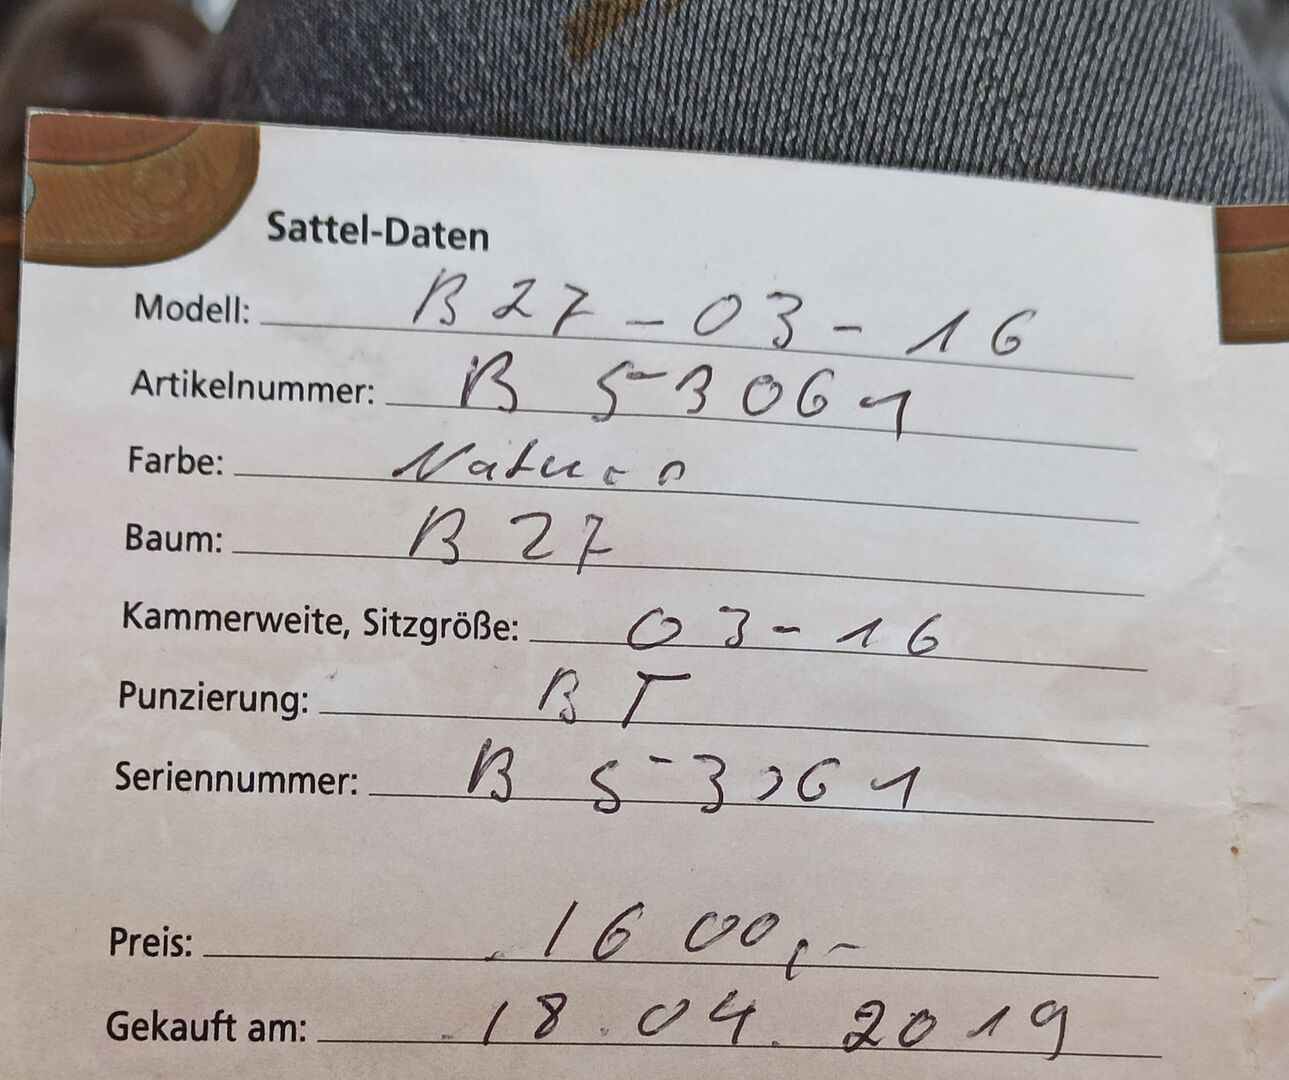 Sattel-Daten
Modell: B27-03-16
Artikelnummer: B 53061
Farbe:
Baum: B27
Kammerweite, Sitzgröße: 03-16
Punzierung: BT
Seriennummer: B 53061
Preis: 1600,-
Gekauft am: 18.04.2019